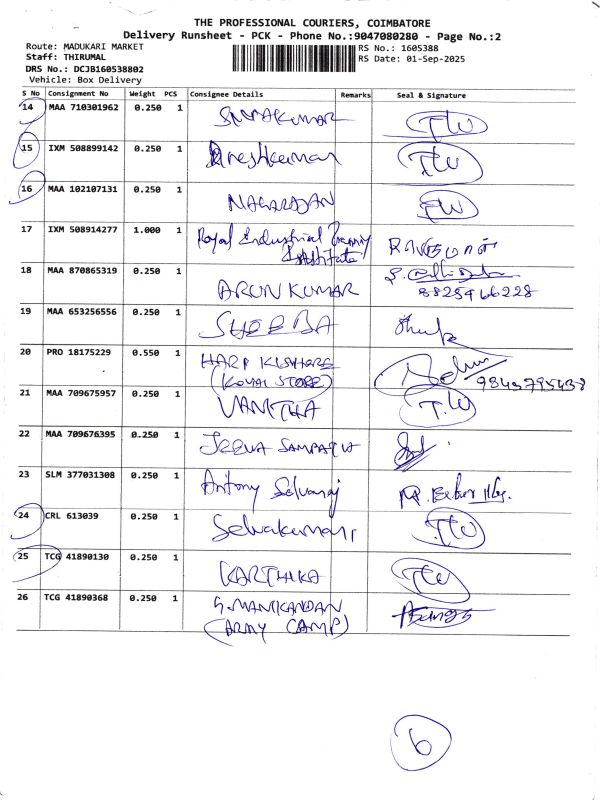 THE PROFESSIONAL COURIERS, COIMBATORE
Delivery Runsheet - PCK - Phone No.:9047080280 - Page No.:2
Route: MADUKARI MARKET
Staff: THIRUMAL
DRS No.: DCJB160538802
Vehicle: Box Delivery
RS No.: 1605388
RS Date: 01-Sep-2025
S No Consignment No Weight PCS Consignee Details Remarks Seal & Signature
14 MAA 710301962 0.250 1 SIVAKUMAR TW
15 IXM 508899142 0.250 1 Areshkumar TW
16 MAA 102107131 0.250 1 NAGARAJAN TW
17 IXM 508914277 1.000 1 Royal Industrial Training
Institute
18 MAA 870865319 0.250 1 ARUN KUMAR 8825466228
19 MAA 653256556 0.250 1 SHEEBA
20 PRO 18175229 0.550 1 HARI KISHORE
(KOVAI STORE)
21 MAA 709675957 0.250 1 VANITHA T.W
22 MAA 709676395 0.250 1 JEEVA SAMPATH
23 SLM 377031308 0.250 1 Antony Selvaraj
24 CRL 613039 0.250 1 Selvakumar TW
25 TCG 41890130 0.250 1 KARTHIKA TW
26 TCG 41890368 0.250 1 S.MANIKANDAN
(ARMY CAMP)
6